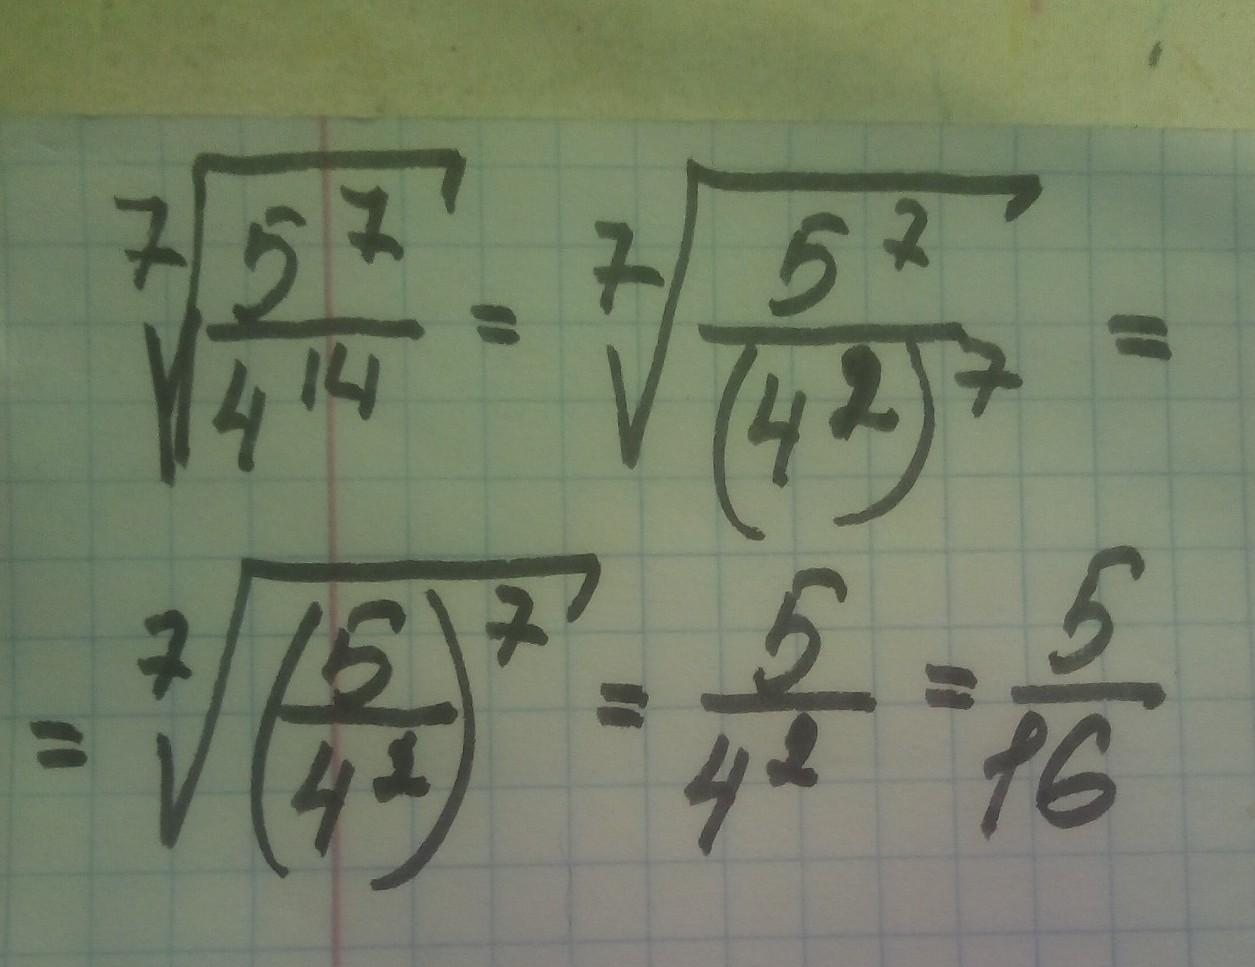 $\sqrt[7]{\frac{5^7}{4^{14}}} = \sqrt[7]{\frac{5^7}{(4^2)^7}} =$
$= \sqrt[7]{\left(\frac{5}{4^2}\right)^7} = \frac{5}{4^2} = \frac{5}{16}$